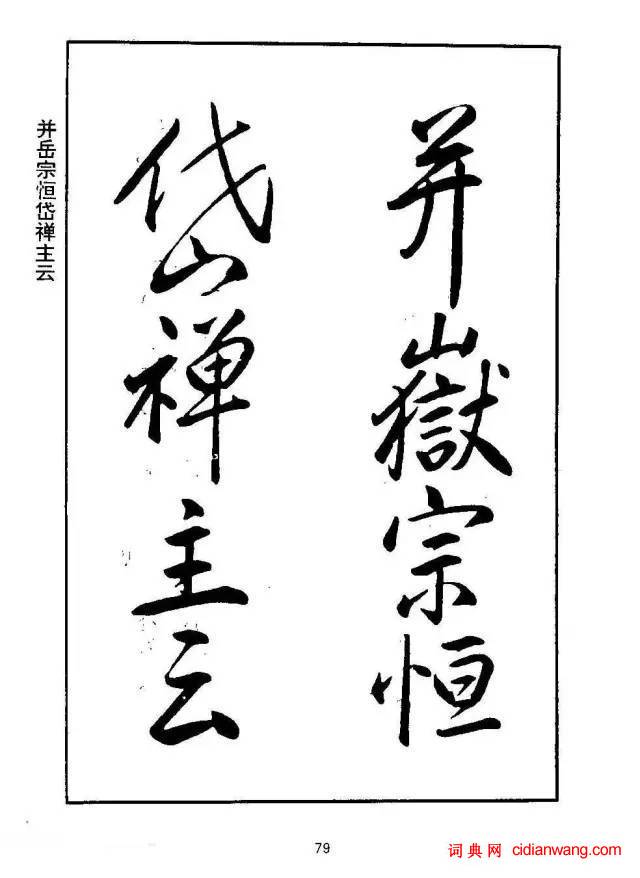 并嶽宗恒
岱禅主云
并岳宗恒岱禅主云
79
词典网 cidianwang.com